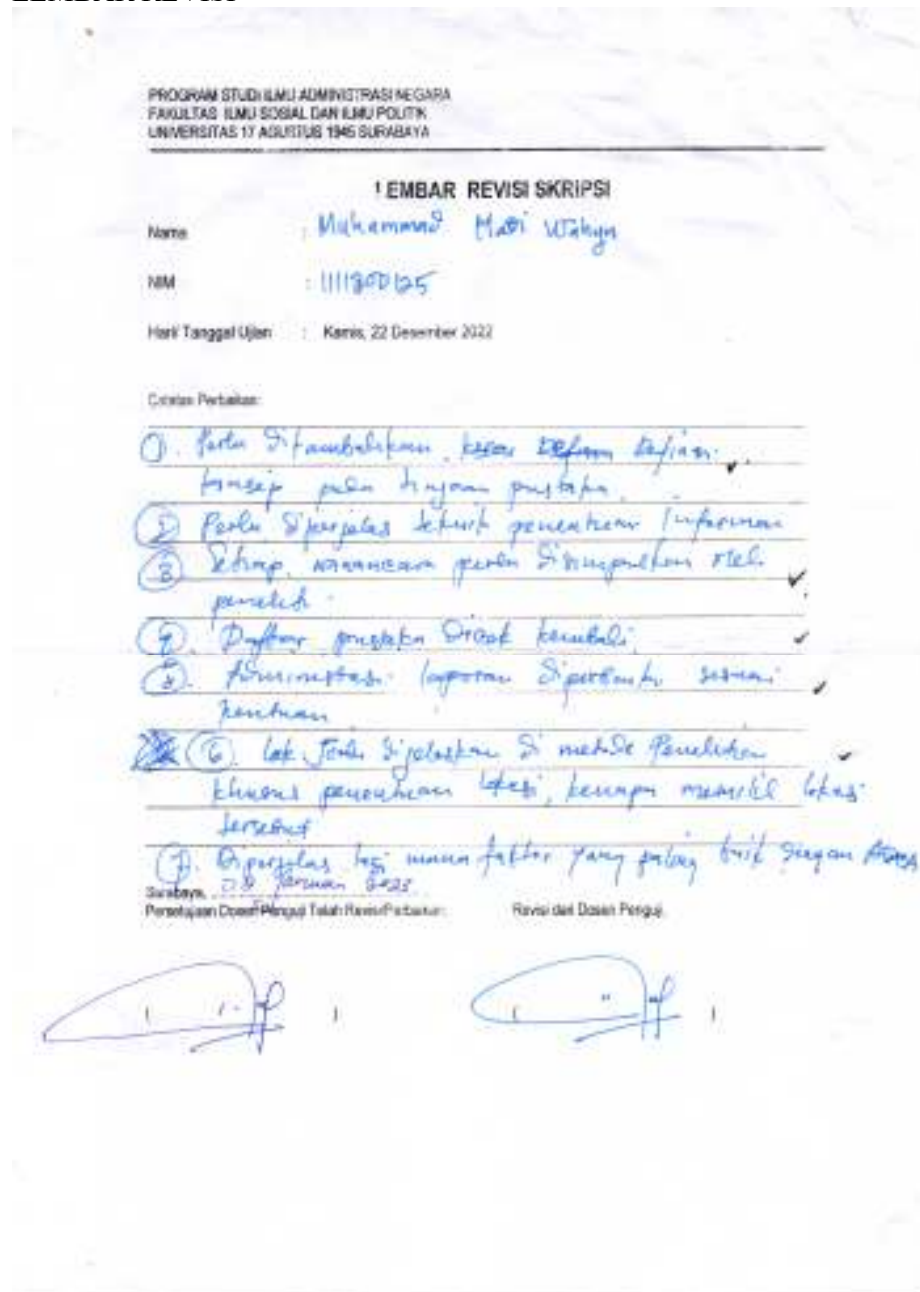 LEMBAR REVISI
PROGRAM STUDI ILMU ADMINISTRASI NEGARA
FAKULTAS ILMU SOSIAL DAN ILMU POLITIK
UNIVERSITAS 17 AGUSTUS 1945 SURABAYA
EMBAR REVISI SKRIPSI
Nama : Muhammad Hadi Wahyu
NIM : 1111800125
Hari/ Tanggal Ujian : Kamis, 22 Desember 2022
Catatan Perbaikan:
1. Perlu ditambahkan
konsep pada tinjauan pustaka.
2 Perlu diperjelas teknik penentuan Informan
3 Setiap wawancara perlu disimpulkan oleh
peneliti.
4. Daftar pustaka dicek kembali
5. Administrasi laporan diperbaiki sesuai
6. dijelaskan di metode Penelitian
khusus penentuan lokasi, kenapa memilih lokasi
tersebut
7. Diperjelas lagi mana faktor yang paling baik dengan
Surabaya, Januari 2023
Persetujuan Dosen Penguji Telah Revisi/Perbaikan:
Revisi dari Dosen Penguji,